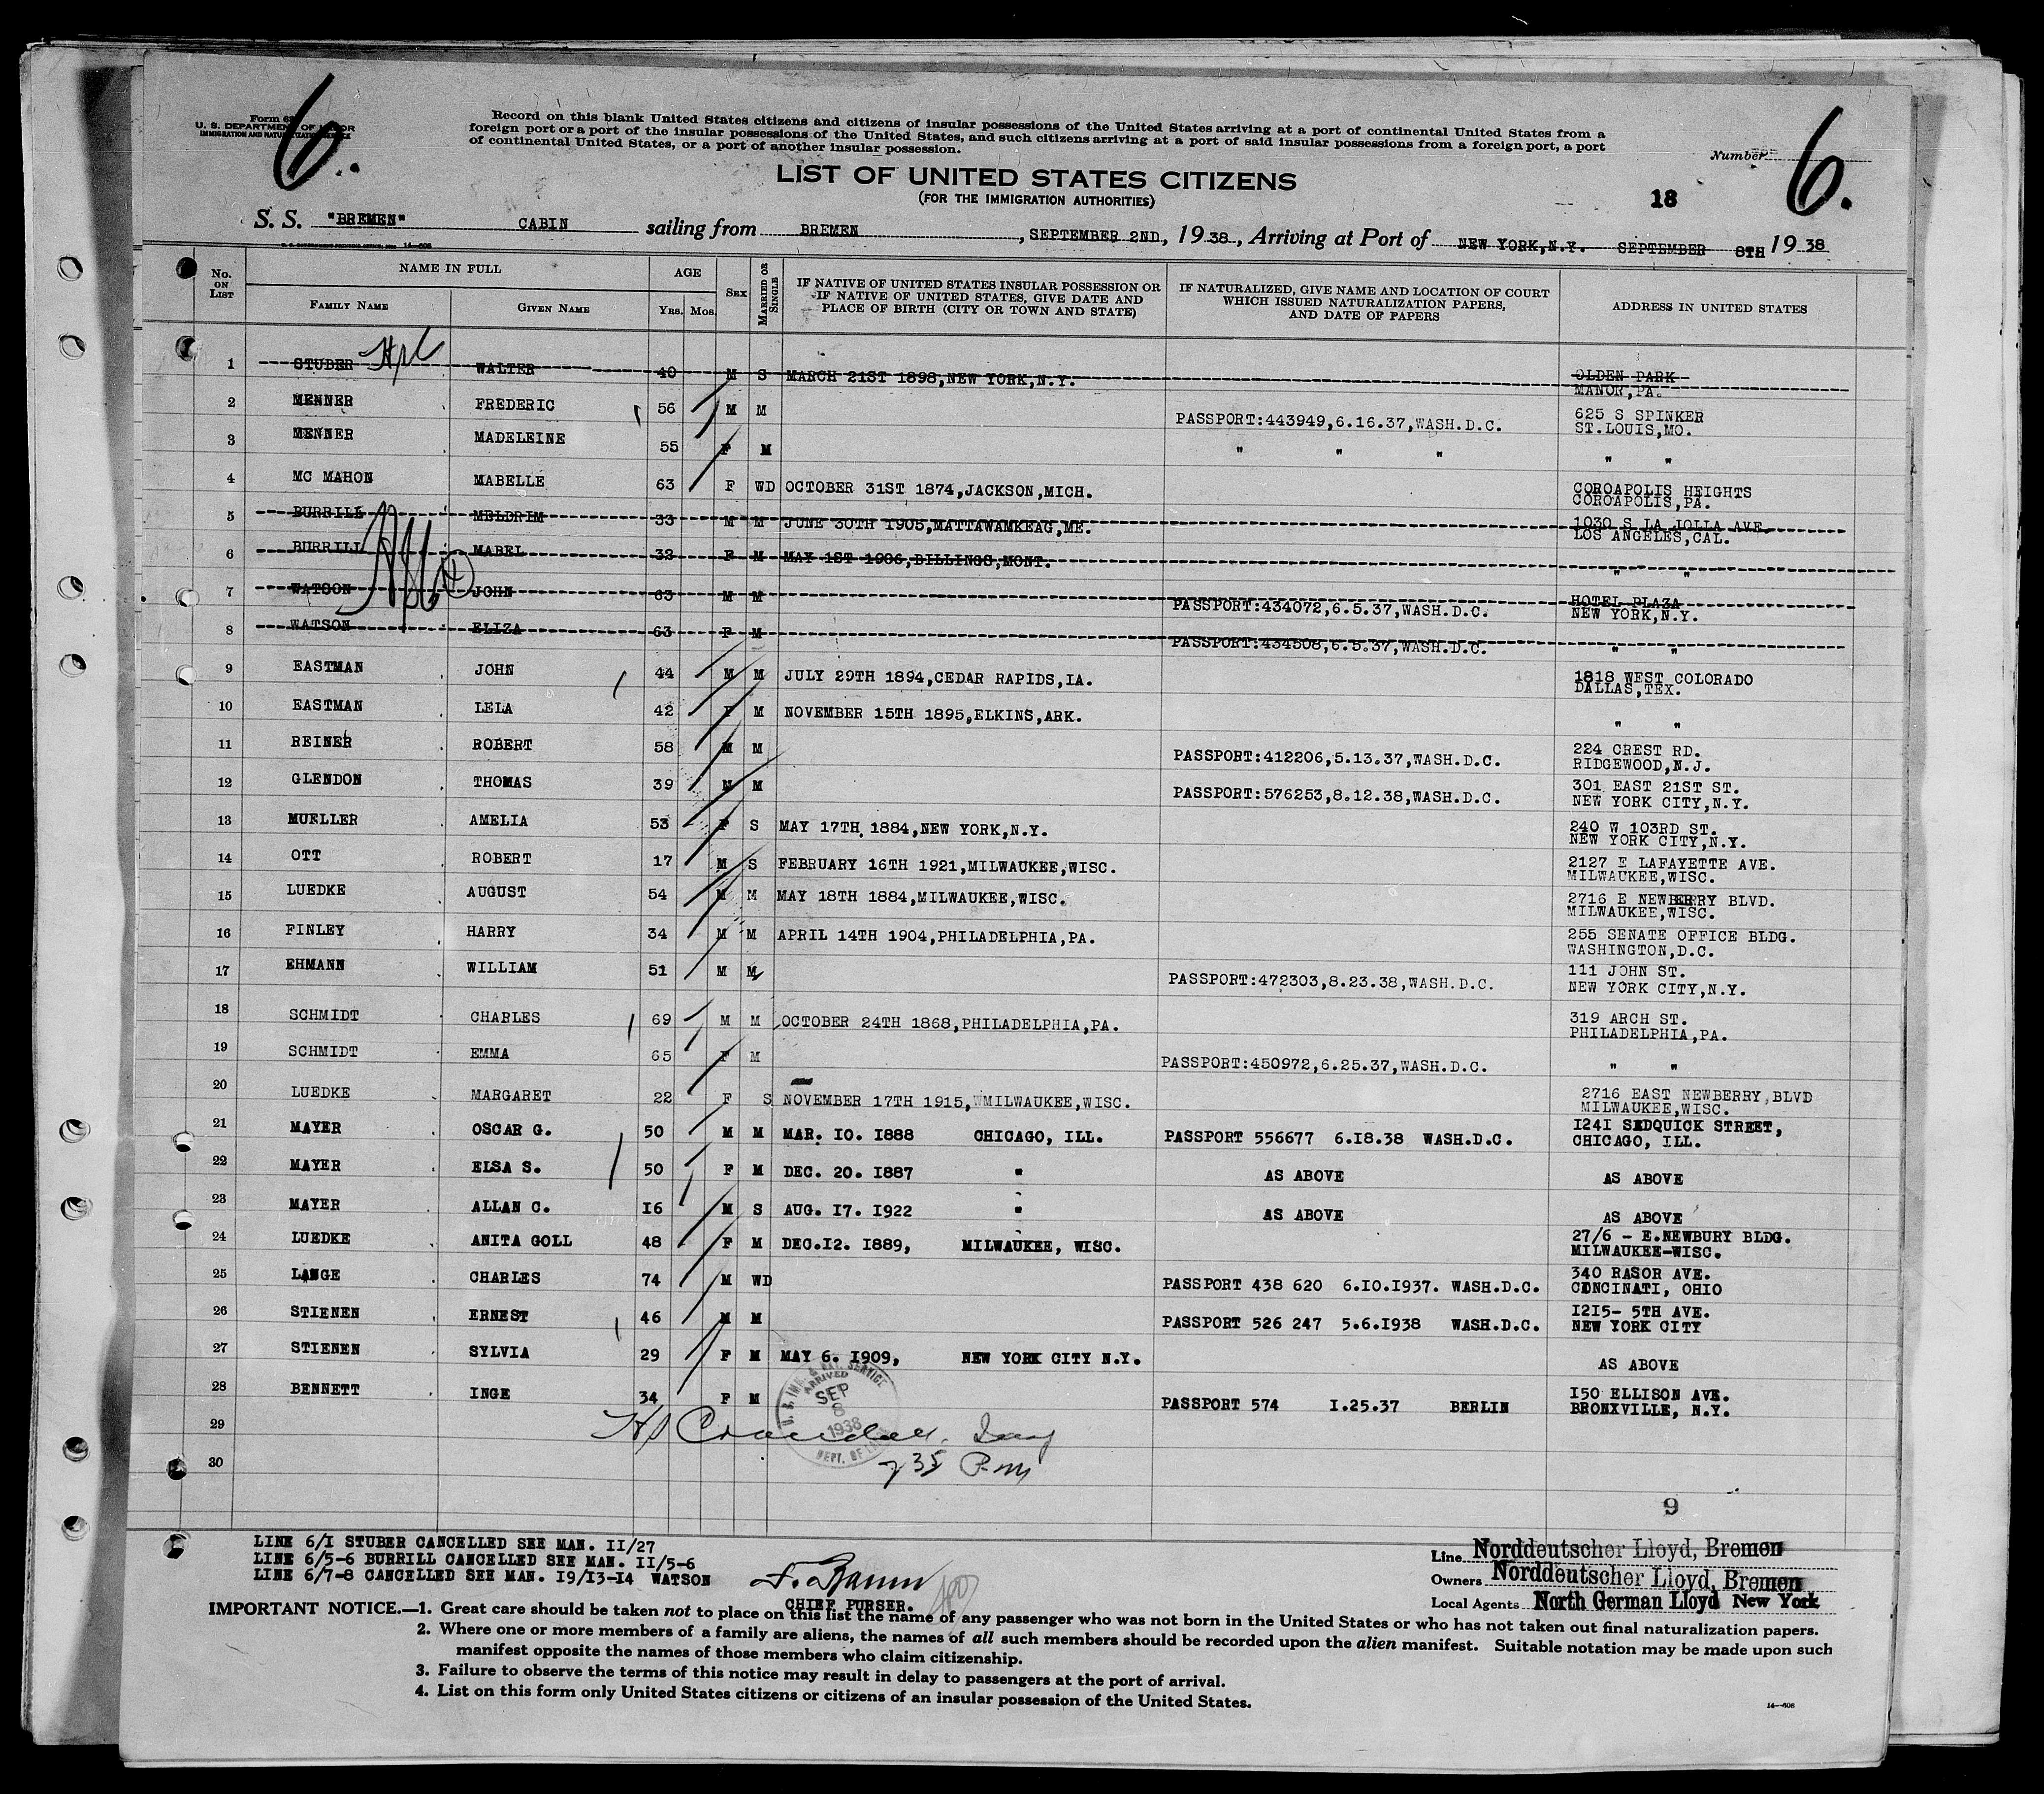 6.
Form 63
U. S. DEPARTMENT OF LABOR
IMMIGRATION AND NATURALIZATION SERVICE
Record on this blank United States citizens and citizens of insular possessions of the United States arriving at a port of continental United States from a
foreign port or a port of the insular possessions of the United States, and such citizens arriving at a port of said insular possessions from a foreign port, a port
of continental United States, or a port of another insular possession.
Number
6.
LIST OF UNITED STATES CITIZENS
(FOR THE IMMIGRATION AUTHORITIES)
18
S. S. "BREMEN" CABIN sailing from BREMEN, SEPTEMBER 2ND, 1938, Arriving at Port of NEW YORK,N.Y. SEPTEMBER 8TH 1938
U. S. GOVERNMENT PRINTING OFFICE 14—608
No. ON LIST NAME IN FULL FAMILY NAME GIVEN NAME AGE Yrs. Mos. SEX MARRIED OR SINGLE IF NATIVE OF UNITED STATES INSULAR POSSESSION OR IF NATIVE OF UNITED STATES, GIVE DATE AND PLACE OF BIRTH (CITY OR TOWN AND STATE) IF NATURALIZED, GIVE NAME AND LOCATION OF COURT WHICH ISSUED NATURALIZATION PAPERS, AND DATE OF PAPERS ADDRESS IN UNITED STATES
1 STUBER WALTER 40 M S MARCH 21ST 1898,NEW YORK,N.Y. OLDEN PARK
MANOR,PA.
2 MENNER FREDERIC 56 M M PASSPORT:443949,6.16.37,WASH.D.C. 625 S SPINKER
ST.LOUIS,MO.
3 MENNER MADELEINE 55 F M " " " " "
4 MC MAHON MABELLE 63 F WD OCTOBER 31ST 1874,JACKSON,MICH. COROAPOLIS HEIGHTS
COROAPOLIS,PA.
5 BURRILL MELDRIM 33 M M JUNE 30TH 1905,MATTAWAMKEAG,ME. 1030 S LA JOLLA AVE.
LOS ANGELES,CAL.
6 BURRILL MABEL 32 F M MAY 1ST 1906,BILLINGS,MONT. " "
7 WATSON JOHN 63 M M PASSPORT:434072,6.5.37,WASH.D.C. HOTEL PLAZA
NEW YORK,N.Y.
8 WATSON ELIZA 63 F M PASSPORT:434508,6.5.37,WASH.D.C. " "
9 EASTMAN JOHN 44 M M JULY 29TH 1894,CEDAR RAPIDS,IA. 1818 WEST COLORADO
DALLAS,TEX.
10 EASTMAN LELA 42 F M NOVEMBER 15TH 1895,ELKINS,ARK. " "
11 REINER ROBERT 58 M M PASSPORT:412206,5.13.37,WASH.D.C. 224 CREST RD.
RIDGEWOOD,N.J.
12 GLENDON THOMAS 39 M M PASSPORT:576253,8.12.38,WASH.D.C. 301 EAST 21ST ST.
NEW YORK CITY,N.Y.
13 MUELLER AMELIA 53 F S MAY 17TH 1884,NEW YORK,N.Y. 240 W 103RD ST.
NEW YORK CITY,N.Y.
14 OTT ROBERT 17 M S FEBRUARY 16TH 1921,MILWAUKEE,WISC. 2127 E LAFAYETTE AVE.
MILWAUKEE,WISC.
15 LUEDKE AUGUST 54 M M MAY 18TH 1884,MILWAUKEE,WISC. 2716 E NEWBERRY BLVD.
MILWAUKEE,WISC.
16 FINLEY HARRY 34 M M APRIL 14TH 1904,PHILADELPHIA,PA. 255 SENATE OFFICE BLDG.
WASHINGTON,D.C.
17 EHMANN WILLIAM 51 M M PASSPORT:472303,8.23.38,WASH.D.C. 111 JOHN ST.
NEW YORK CITY,N.Y.
18 SCHMIDT CHARLES 69 M M OCTOBER 24TH 1868,PHILADELPHIA,PA. 319 ARCH ST.
PHILADELPHIA,PA.
19 SCHMIDT EMMA 65 F M PASSPORT:450972,6.25.37,WASH.D.C. " "
20 LUEDKE MARGARET 22 F S NOVEMBER 17TH 1915,WMILWAUKEE,WISC. 2716 EAST NEWBERRY,BLVD
MILWAUKEE,WISC.
21 MAYER OSCAR G. 50 M M MAR. IO. I888 CHICAGO, ILL. PASSPORT 556677 6.I8.38 WASH.D.C. I24I SEDQUICK STREET,
CHICAGO, ILL.
22 MAYER ELSA S. 50 F M DEC. 20. I887 " AS ABOVE AS ABOVE
23 MAYER ALLAN C. I6 M S AUG. I7. I922 " AS ABOVE AS ABOVE
24 LUEDKE ANITA GOLL 48 F M DEC.I2. I889, MILWAUKEE, WISC. 27/6 - E.NEWBURY BLDG.
MILWAUKEE-WISC.
25 LANGE CHARLES 74 M WD PASSPORT 438 620 6.IO.I937. WASH.D.C. 340 RASOR AVE.
CINCINATI, OHIO
26 STIENEN ERNEST 46 M M PASSPORT 526 247 5.6.I938 WASH.D.C. I2I5- 5TH AVE.
NEW YORK CITY
27 STIENEN SYLVIA 29 F M MAY 6. I909, NEW YORK CITY N.Y. AS ABOVE
28 BENNETT INGE 34 F M PASSPORT 574 I.25.37 BERLIN I50 ELLISON AVE.
BRONXVILLE, N.Y.
29
30
U. S. IMM. & NAT. SERVICE
ARRIVED
SEP
8
1938
DEPT. OF LABOR
35 P.m
9
LINE 6/I STUBER CANCELLED SEE MAN. II/27
LINE 6/5-6 BURRILL CANCELLED SEE MAN. II/5-6
LINE 6/7-8 CANCELLED SEE MAN. I9/I3-I4 WATSON
CHIEF PURSER.
Line Norddeutscher Lloyd, Bremen
Owners Norddeutscher Lloyd, Bremen
Local Agents North German Lloyd New York
IMPORTANT NOTICE.—1. Great care should be taken not to place on this list the name of any passenger who was not born in the United States or who has not taken out final naturalization papers.
2. Where one or more members of a family are aliens, the names of all such members should be recorded upon the alien manifest. Suitable notation may be made upon such
manifest opposite the names of those members who claim citizenship.
3. Failure to observe the terms of this notice may result in delay to passengers at the port of arrival.
4. List on this form only United States citizens or citizens of an insular possession of the United States.
14—608